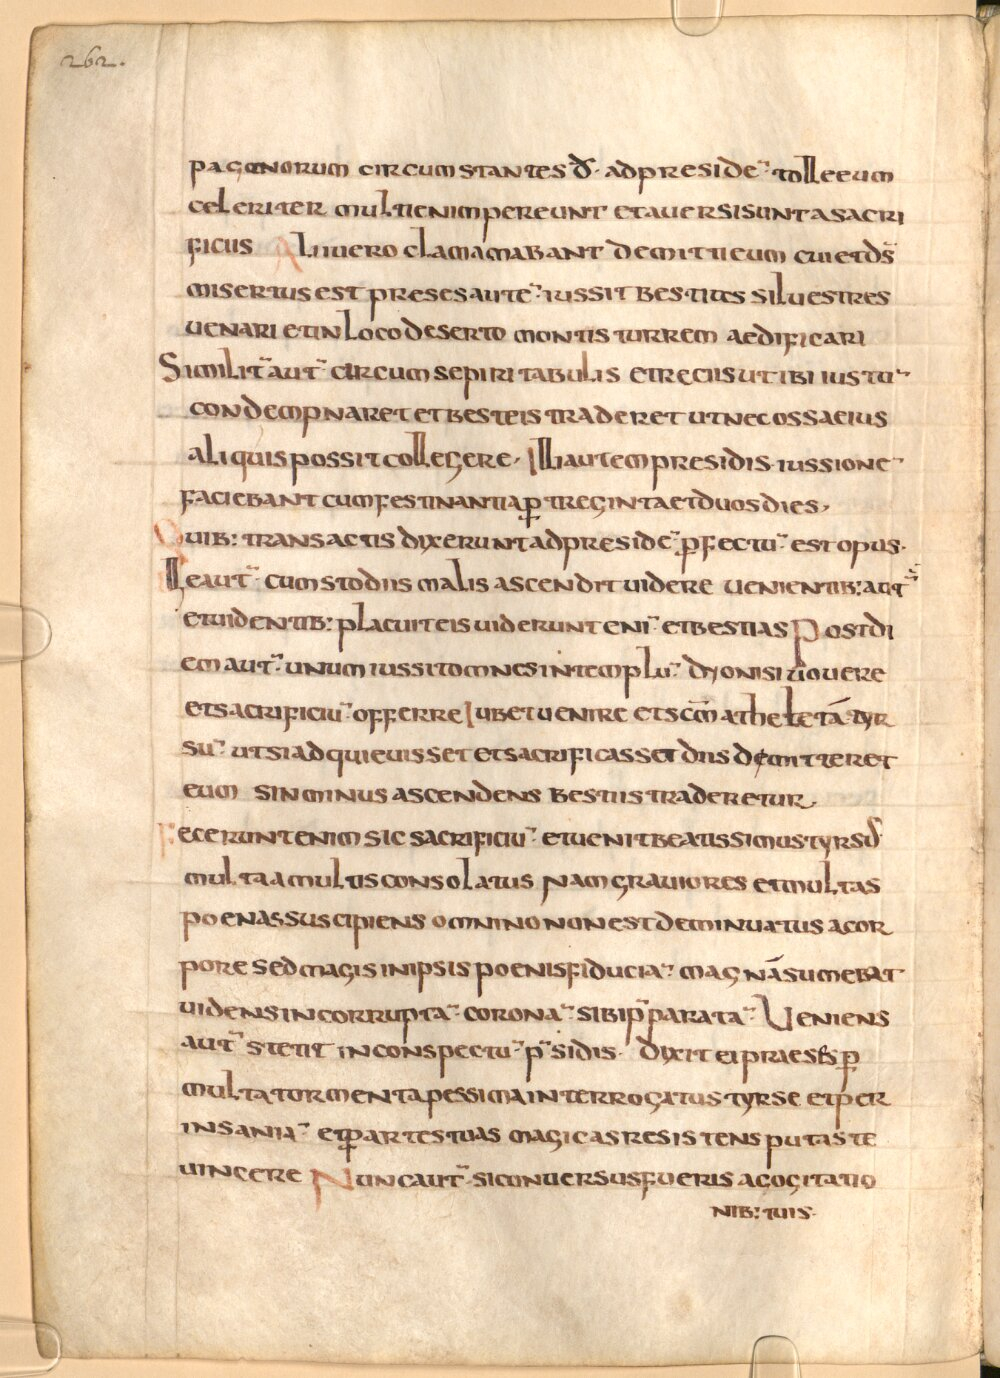 262.
paganorum circumstantes đ· ad preside͂· tolle eum
celeriter multi enim pereunt et aversi sunt a sacri
ficiis Alii vero clamamabant demitti eum cui et ds̄
misertus est preses aute͂· iussit bestias silvestres
venari et in loco deserto montis turrem aedificari
Similit͂ aut͂ circum sepiri tabulis et reciis ut ibi iustu͂
condempnaret et besteis traderet ut nec ossa eius
aliquis possit collegere, Illi autem presidis iussione͂
faciebant cum festinantia ꝑ treginta et duos dies,
Quib: transactis dixerunt ad preside͂ ꝑfectu͂ est opus·
Ille aut͂ cum stodiis malis ascendit videre venientib: aut͂
et videntib: placuit eis viderunt eni͂ et bestias Post di
em aut͂ unum iussit omnes in templu͂ dyonisi movere
et sacrificiu͂ offerre Iubet venire et scm̄ atheleta͂ tyr
su͂ ut si adquievisset et sacrificasset diis demitteret
eum sin minus ascendens bestiis traderetur,
Fecerunt enim sic sacrificiu͂ et venit beatissimus tyrsus
multa a multis consolatus nam graviores et multas
poenas suscipiens omnino non est deminuatus a cor
pore sed magis in ipsis poenis fiducia͂ magna͂ sumebat
videns incorrupta͂ corona͂ sibi p͂parata͂ Veniens
aut͂ stetit in conspectu͂ p͂sidis· dixit ei praeses ꝑ
multa tormenta pessima interrogatus tyrse et per
insania͂ et ꝑ artes tuas magicas resistens putas te
vincere Nunc aut͂ si conversus fueris a cogitatio
nib: tuis·